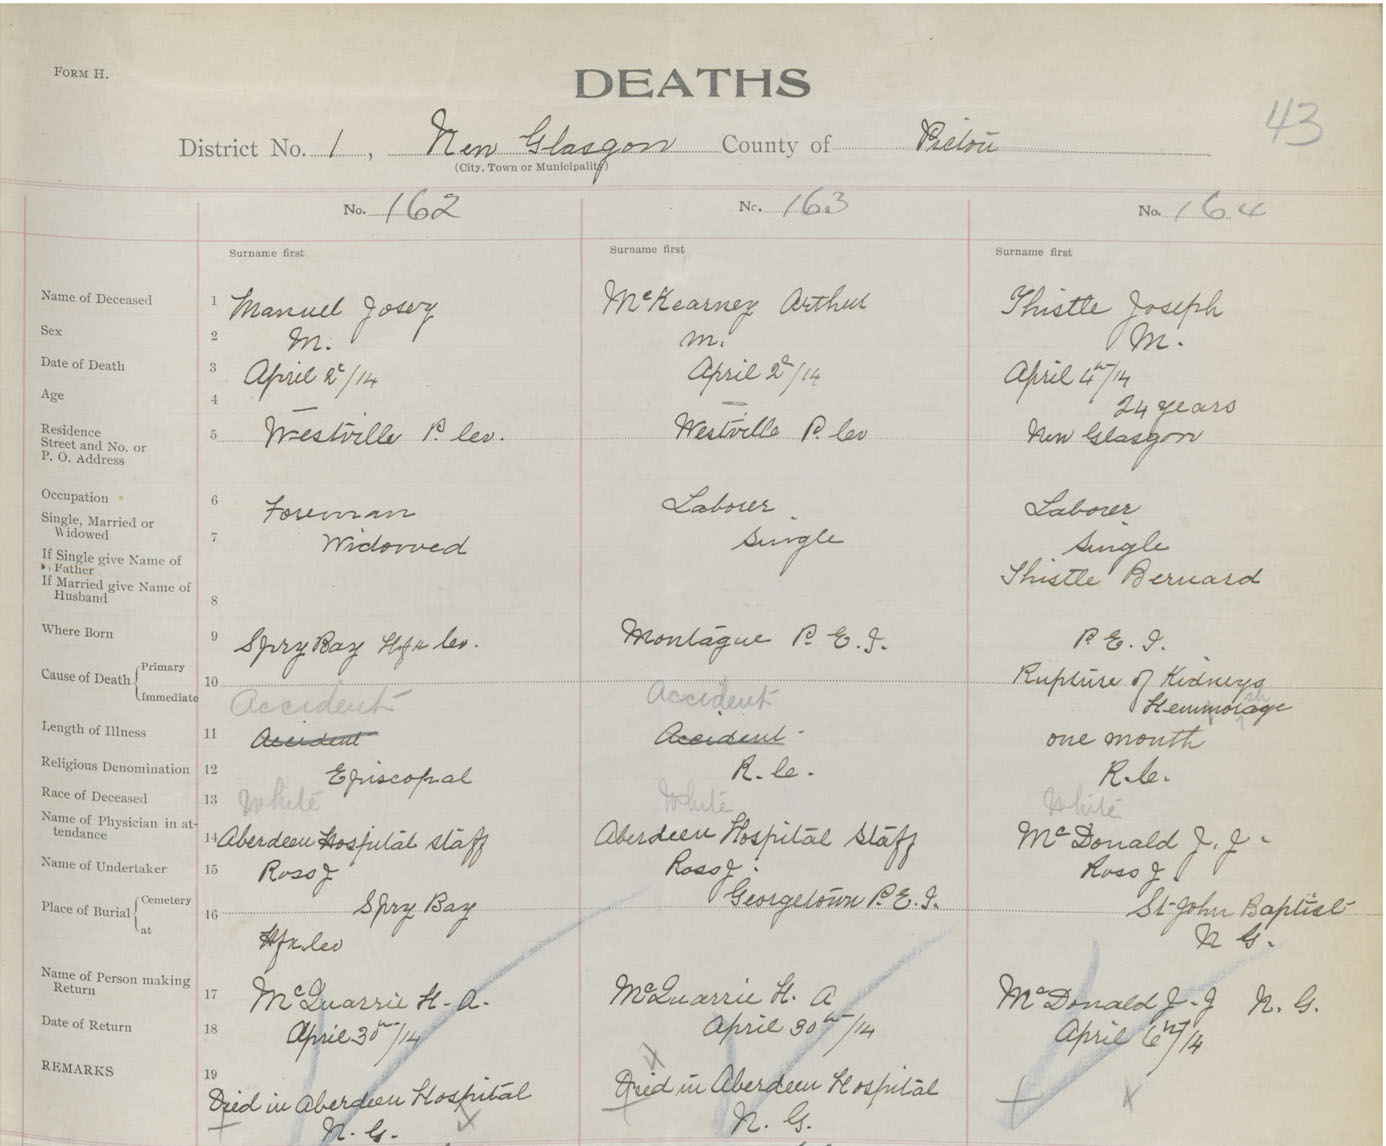 FORM H.
DEATHS
43
District No. 1, New Glasgow County of Pictou
(City, Town or Municipality)
No. 162 No. 163 No. 164
Surname first Surname first Surname first
Name of Deceased 1 Manuel Josey McKearney Arthur Thistle Joseph
Sex 2 M. M. M.
Date of Death 3 April 2d/14 April 2d/14 April 4th/14
Age 4 — — 24 years
Residence
Street and No. or
P. O. Address
5 Westville P. Co. Westville P. Co New Glasgow
Occupation 6 Foreman Laborer Laborer
Single, Married or
Widowed
7 Widowed Single Single
If Single give Name of
Father
If Married give Name of
Husband
8 Thistle Bernard
Where Born 9 Spry Bay Hfx Co. Montague P. E. I. P. E. I.
Cause of Death { Primary
Immediate
10 Accident Accident Rupture of Kidneys
Hemmorage
Length of Illness 11 Accident Accident one month
Religious Denomination 12 Episcopal R. C. R. C.
Race of Deceased 13 White White White
Name of Physician in at-
tendance
14 Aberdeen Hospital staff Aberdeen Hospital Staff McDonald J. J.
Name of Undertaker 15 Ross J Ross J. Ross J.
Place of Burial { Cemetery
at
16 Spry Bay Georgetown P. E. I. St John Baptist
Hfx Co N G.
Name of Person making
Return
17 McQuarrie H. A. McQuarrie H. A McDonald J. J N. G.
Date of Return 18 April 30th/14 April 30th/14 April 6th/14
REMARKS 19
Died in Aberdeen Hospital Died in Aberdeen Hospital
N. G. N. G.